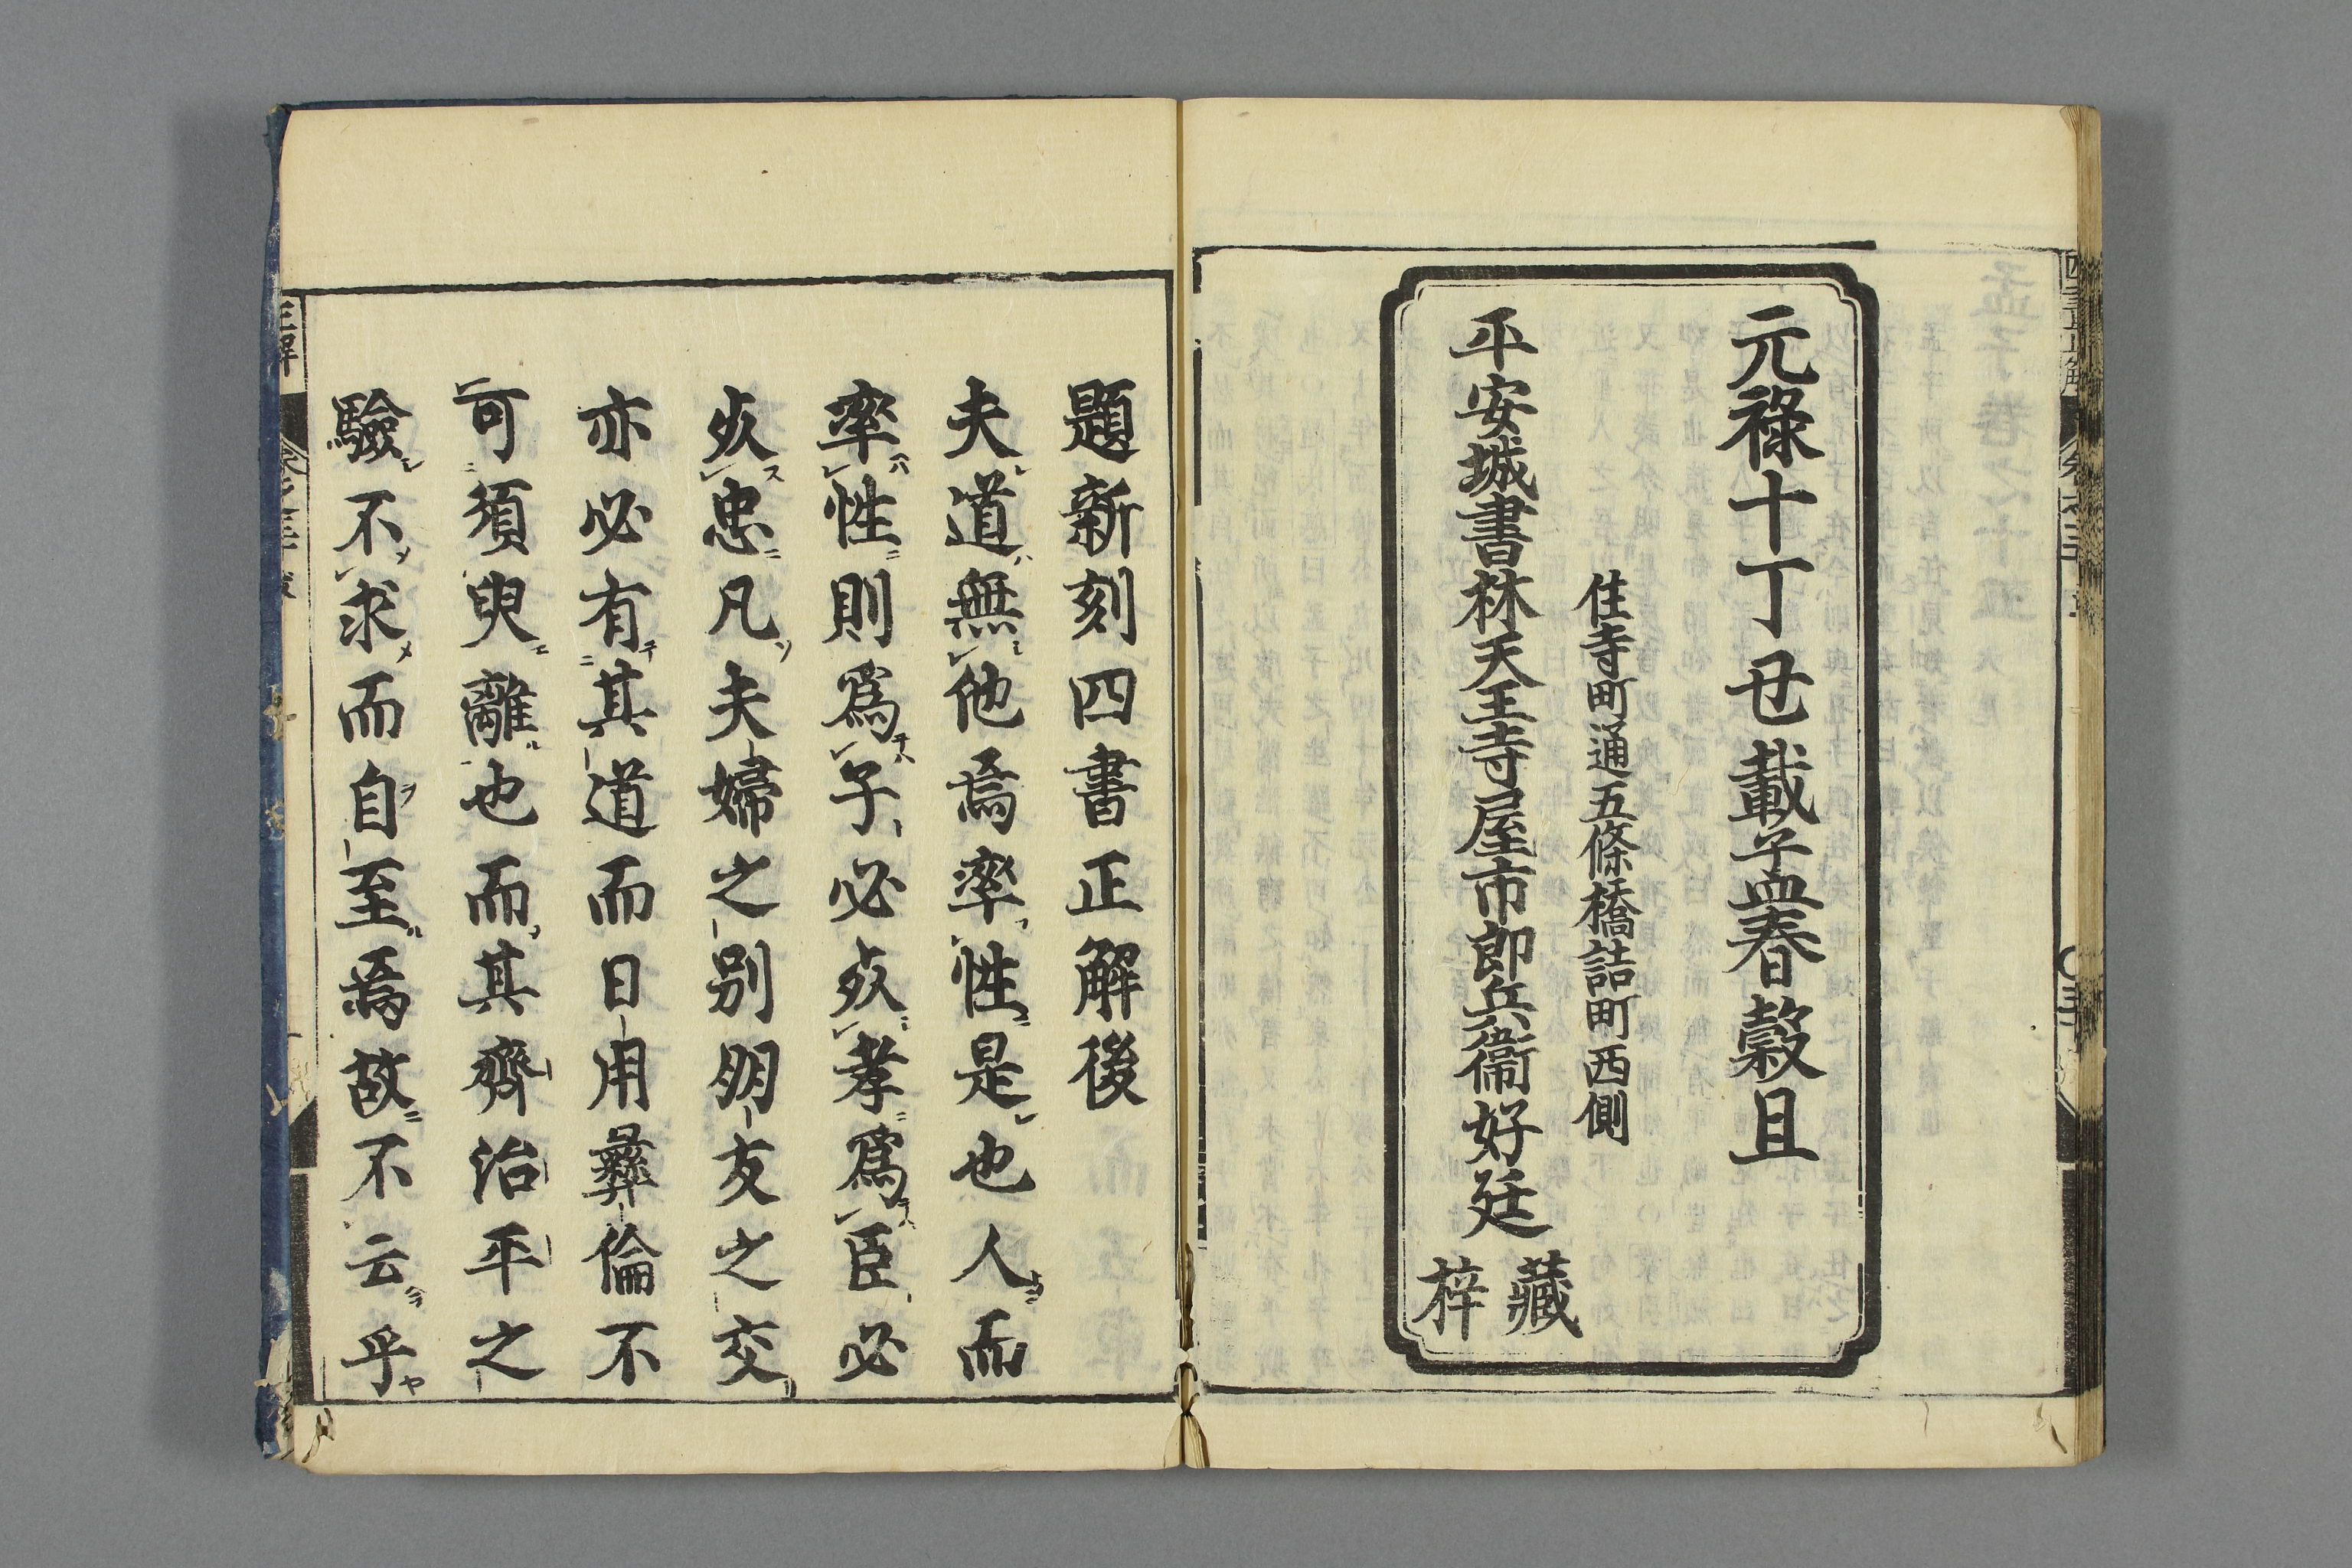 元禄十丁丑載孟春穀且
住寺町通五條橋詰町西側
平安城書林天王寺屋市郎兵衞好廷
藏
梓
題新刻四書正解後
夫道無他焉率性是也人而
率性則爲子必效孝爲臣必
效忠凡夫婦之別朋友之交
亦必有其道而日用彛倫不
可須臾離也而其齊治平之
驗不求而自至焉故不云乎